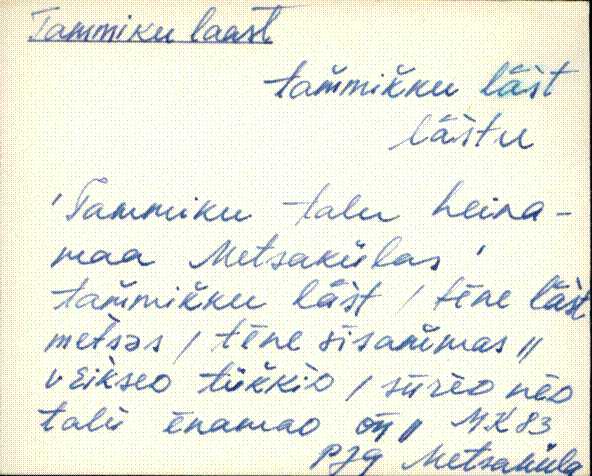 Tammiku laast
tam̆mik̆ku lāst
lāstu
'Tammiku talu heina-
maa Metsakülas'
tam̆mik̆ku lāst / tēne lāst
metsəs / tēne sisam̆mas //
veikseo tükkiö / sūreo neo
talu ēnamao on // MK 83
PJg Metsaküla